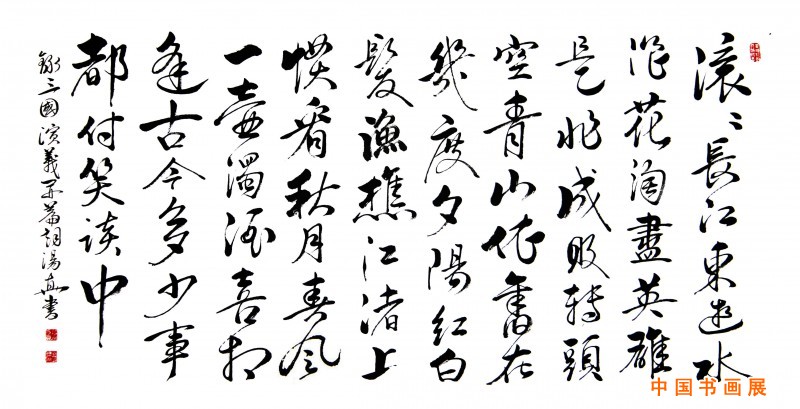 滚〻長江東逝水
浪花淘盡英雄
是非成败轉頭
空青山依舊在
幾度夕陽紅白
髮漁樵江渚上
惯看秋月春风
一壺濁酒喜相
逢古今多少事
都付笑谈中
錄三國演義开篇詞湯真书
中国书画展